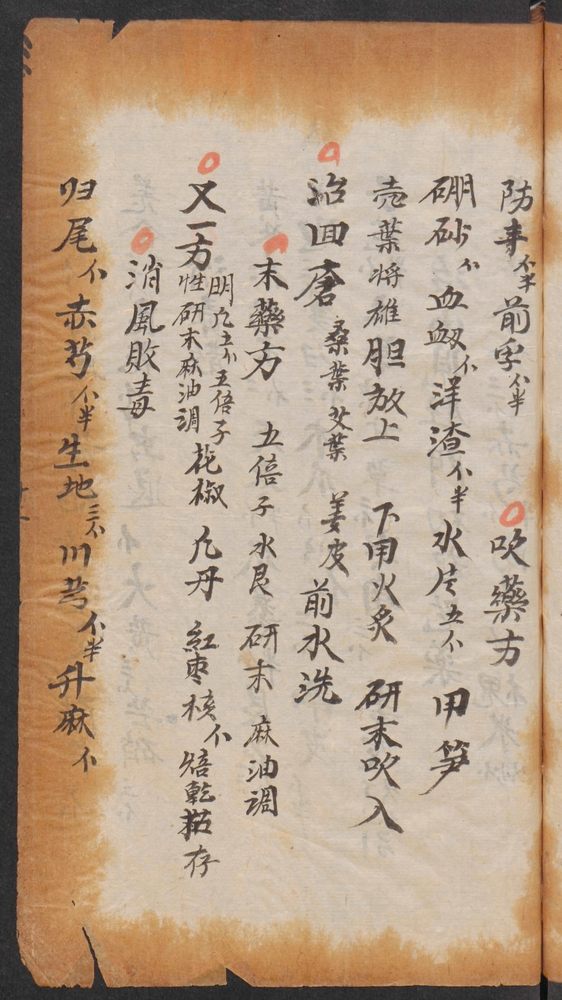 防丰不半 前孛不半 吹藥方
硼砂不 血䘐不 洋渣不半 水片五不 用笋
壳葉将雄胆放上 下用火炙 研末吹入
治回瘡 桑葉 艾葉 姜皮 前水洗
末藥方 五倍子 水艮 研末 麻油調
又一方 明凡五不 五倍子 性研末麻油調 花椒 凡丹 紅枣核不 焙乾 存
消風敗毒
归尾不 赤芍不半 生地三不 川芎不半 升麻不